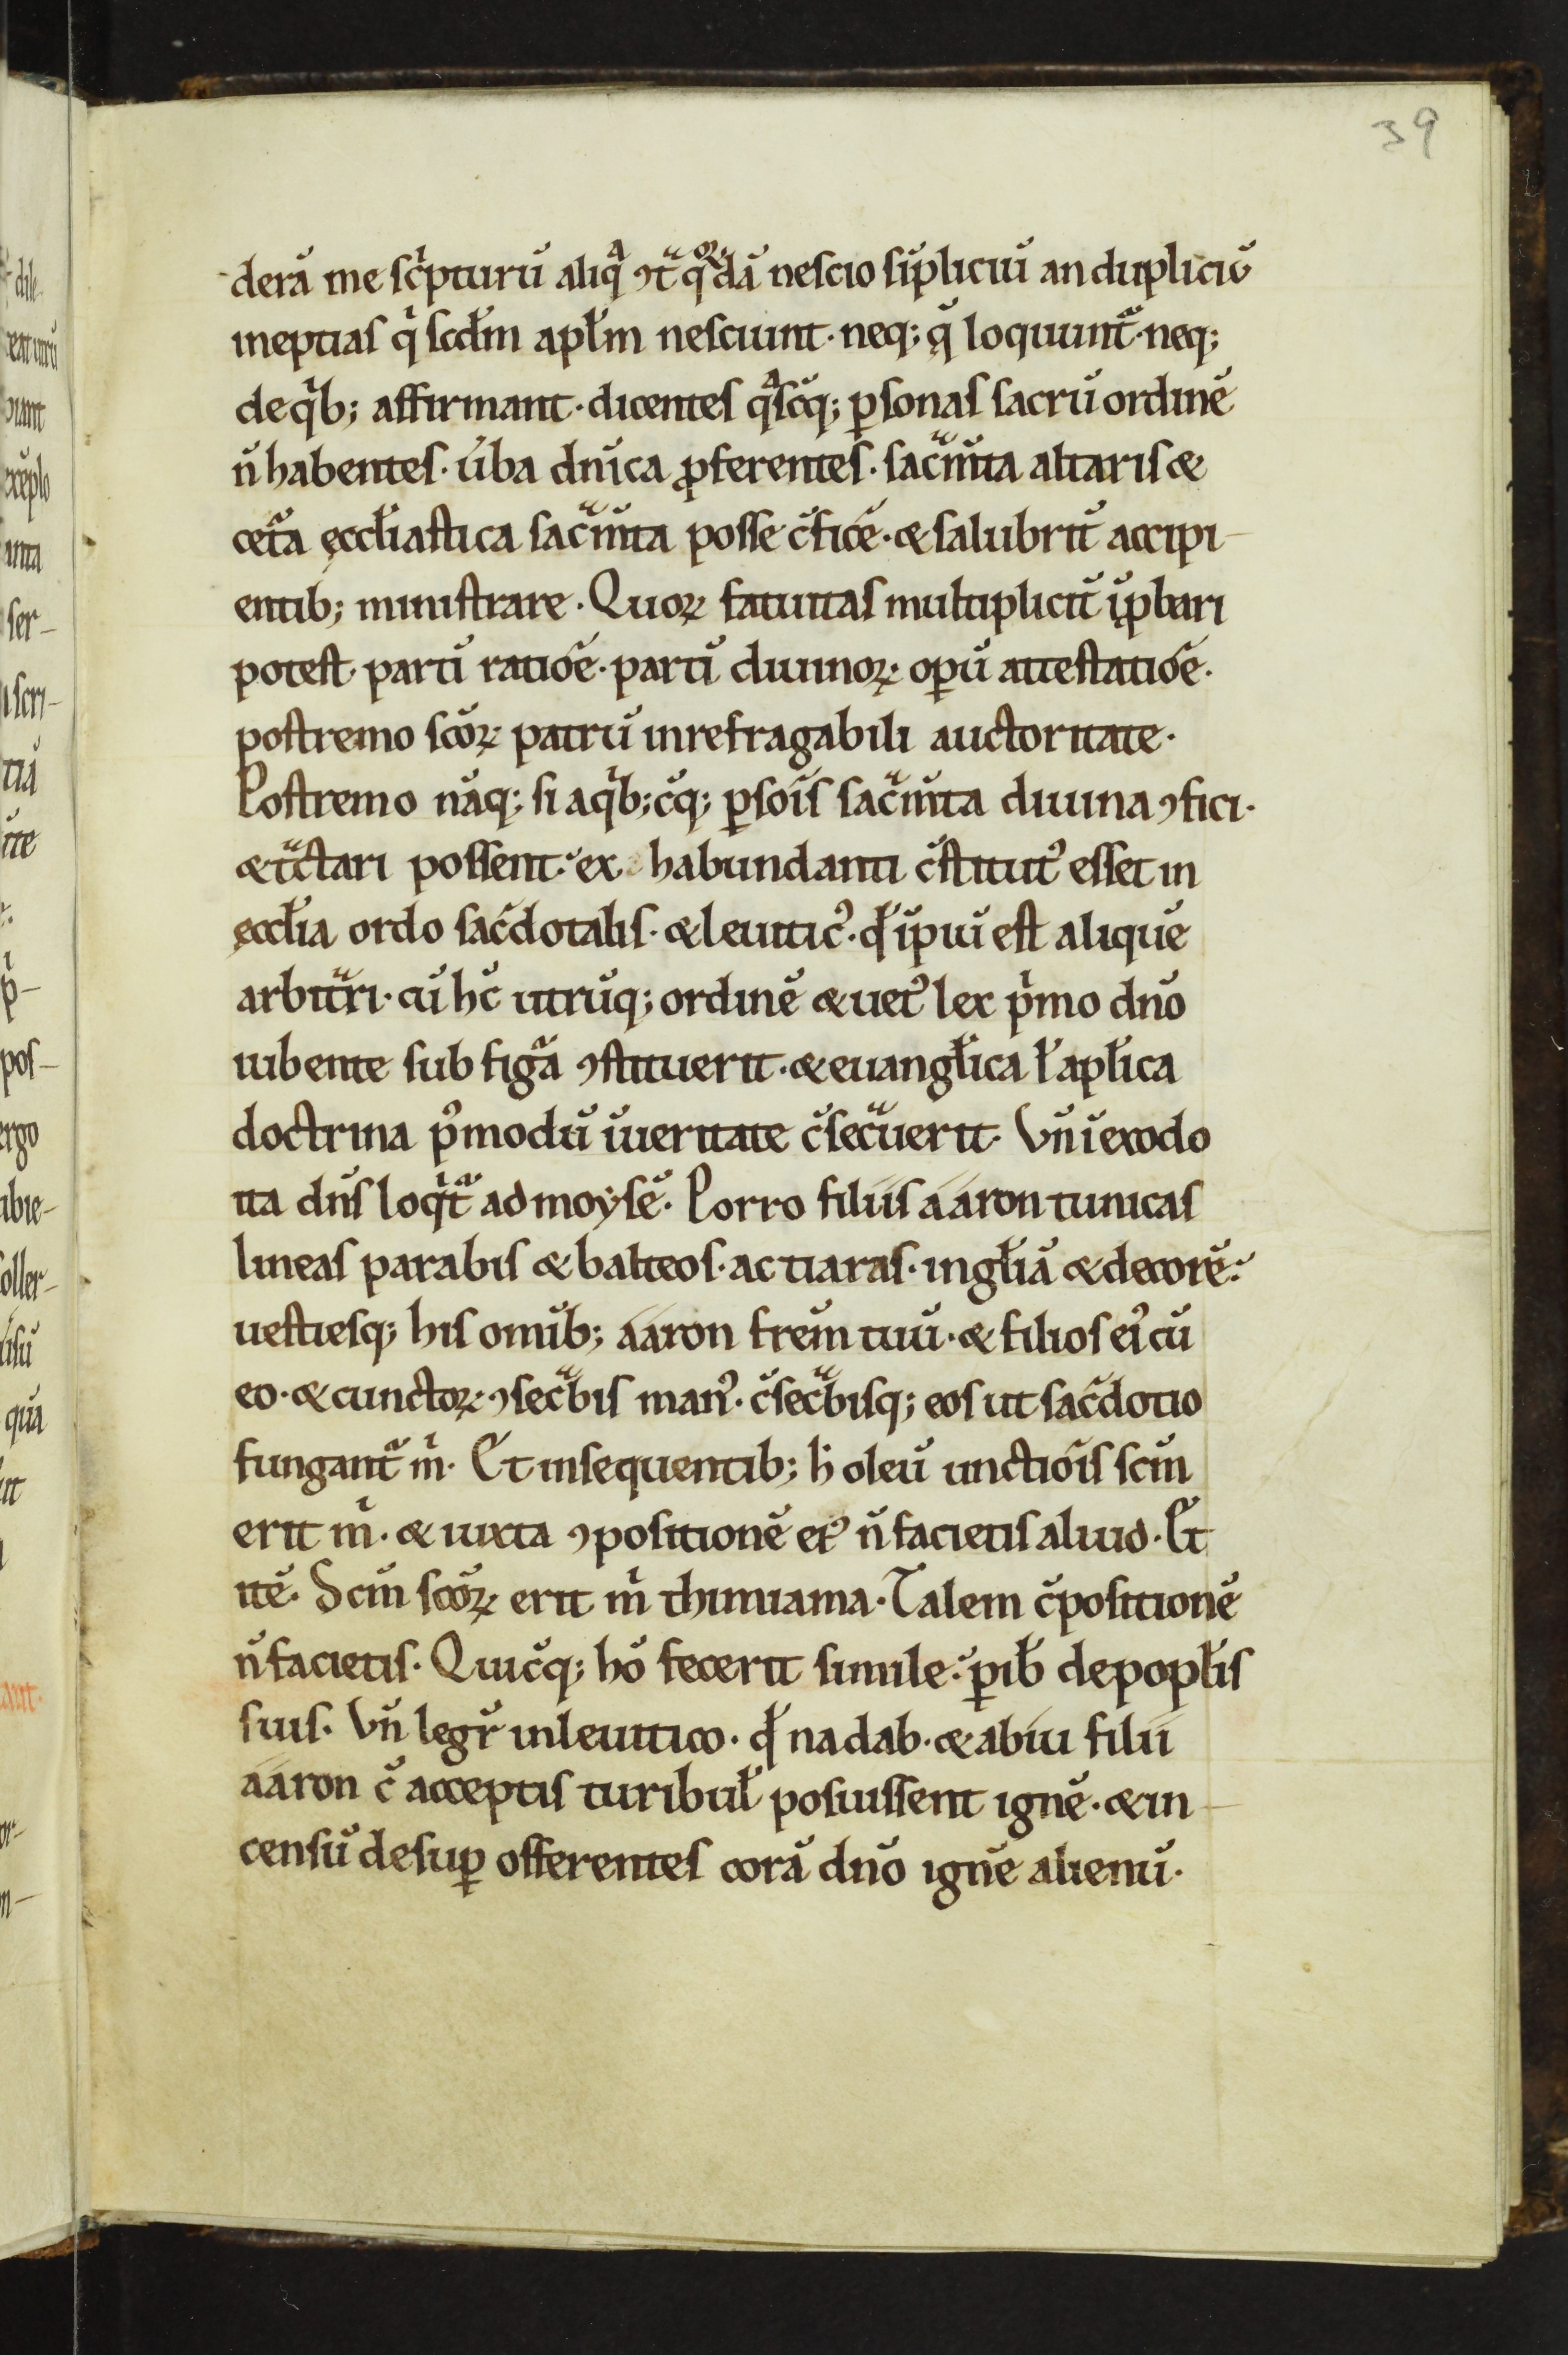 39
derā me sc͛pturū aliqͣ ꝯtͣ qͦꝝdā nescio sīpliciū an dupliciū
ineptias qͥ scdm̄ apłm nesciunt · neq; q̄ loquunt᷑ · neq;
de qͥb; affirmant · dicentes qͣscq; ꝑsonas sacrū ordinē
n̄ habentes · ūba dn̄ica ꝓferentes · sacͣm̄ta altaris &
cet᷑a ęccłiastica sacͣm̄ta posse c̄ficē · & salubrit̄ accipi-
entib; ministrare · Quoꝝ fatuitas multiplicit̄ īꝓbari
potest · partī ratiōe · partī diuinoꝝ opū attestatiōe ·
postremo sc̄oꝝ patrū inrefragabili auctoritate ·
Postremo nāq; si a qͥb;cq; ꝑsōis sacͣm̄ta diuina ꝯfici ·
& tͣctari possent · ex habundanti c̄stitutꝰ esset in
ęccłia ordo sac̄dotalis · & leuiticꝰ · qđ īpiū est aliquē
arbitͣri · cū hc̄ utrūq; ordinē & uetꝰ lex pͥmo dn̄o
iubente sub figᷓa ꝯstituerit · & euangłica ł apłica
doctrina pꝰmodū ī ueritate c̄secͣuerit · Vn̄ ī exodo
ita dn̄s loqͥt᷑ ad moysē · Porro filiis aaron tunicas
lineas parabis & balteos · ac tiaras · in głiā & decorē ·
uestiesq; his omīb; aaron frēm tuū · & filios eiꝰ cū
eo · & cunctoꝝ ꝯsecͣbis manꝰ · c̄secͣbisq; eos ut sac̄dotio
fungant᷑ mͥ · Et in sequentib; h̄ oleū unctiōis scm̄
erit mͥ · & iuxta ꝯpositionē eiꝰ n̄ facietis aliud · Et
itē · Scm̄ sc̄oꝝ erit mͥ thimiama · Talem c̄positionē
n̄ facietis · Quicq; hō fecerit simile · ꝑib̄ de popłis
suis · Vn̄ legr̄ in leuitico · qđ nadab · & abiu filii
aaron c̄ acceptis turibuł posuissent ignē · & in-
censū desuꝑ offerentes corā dn̄o ignē alienū ·